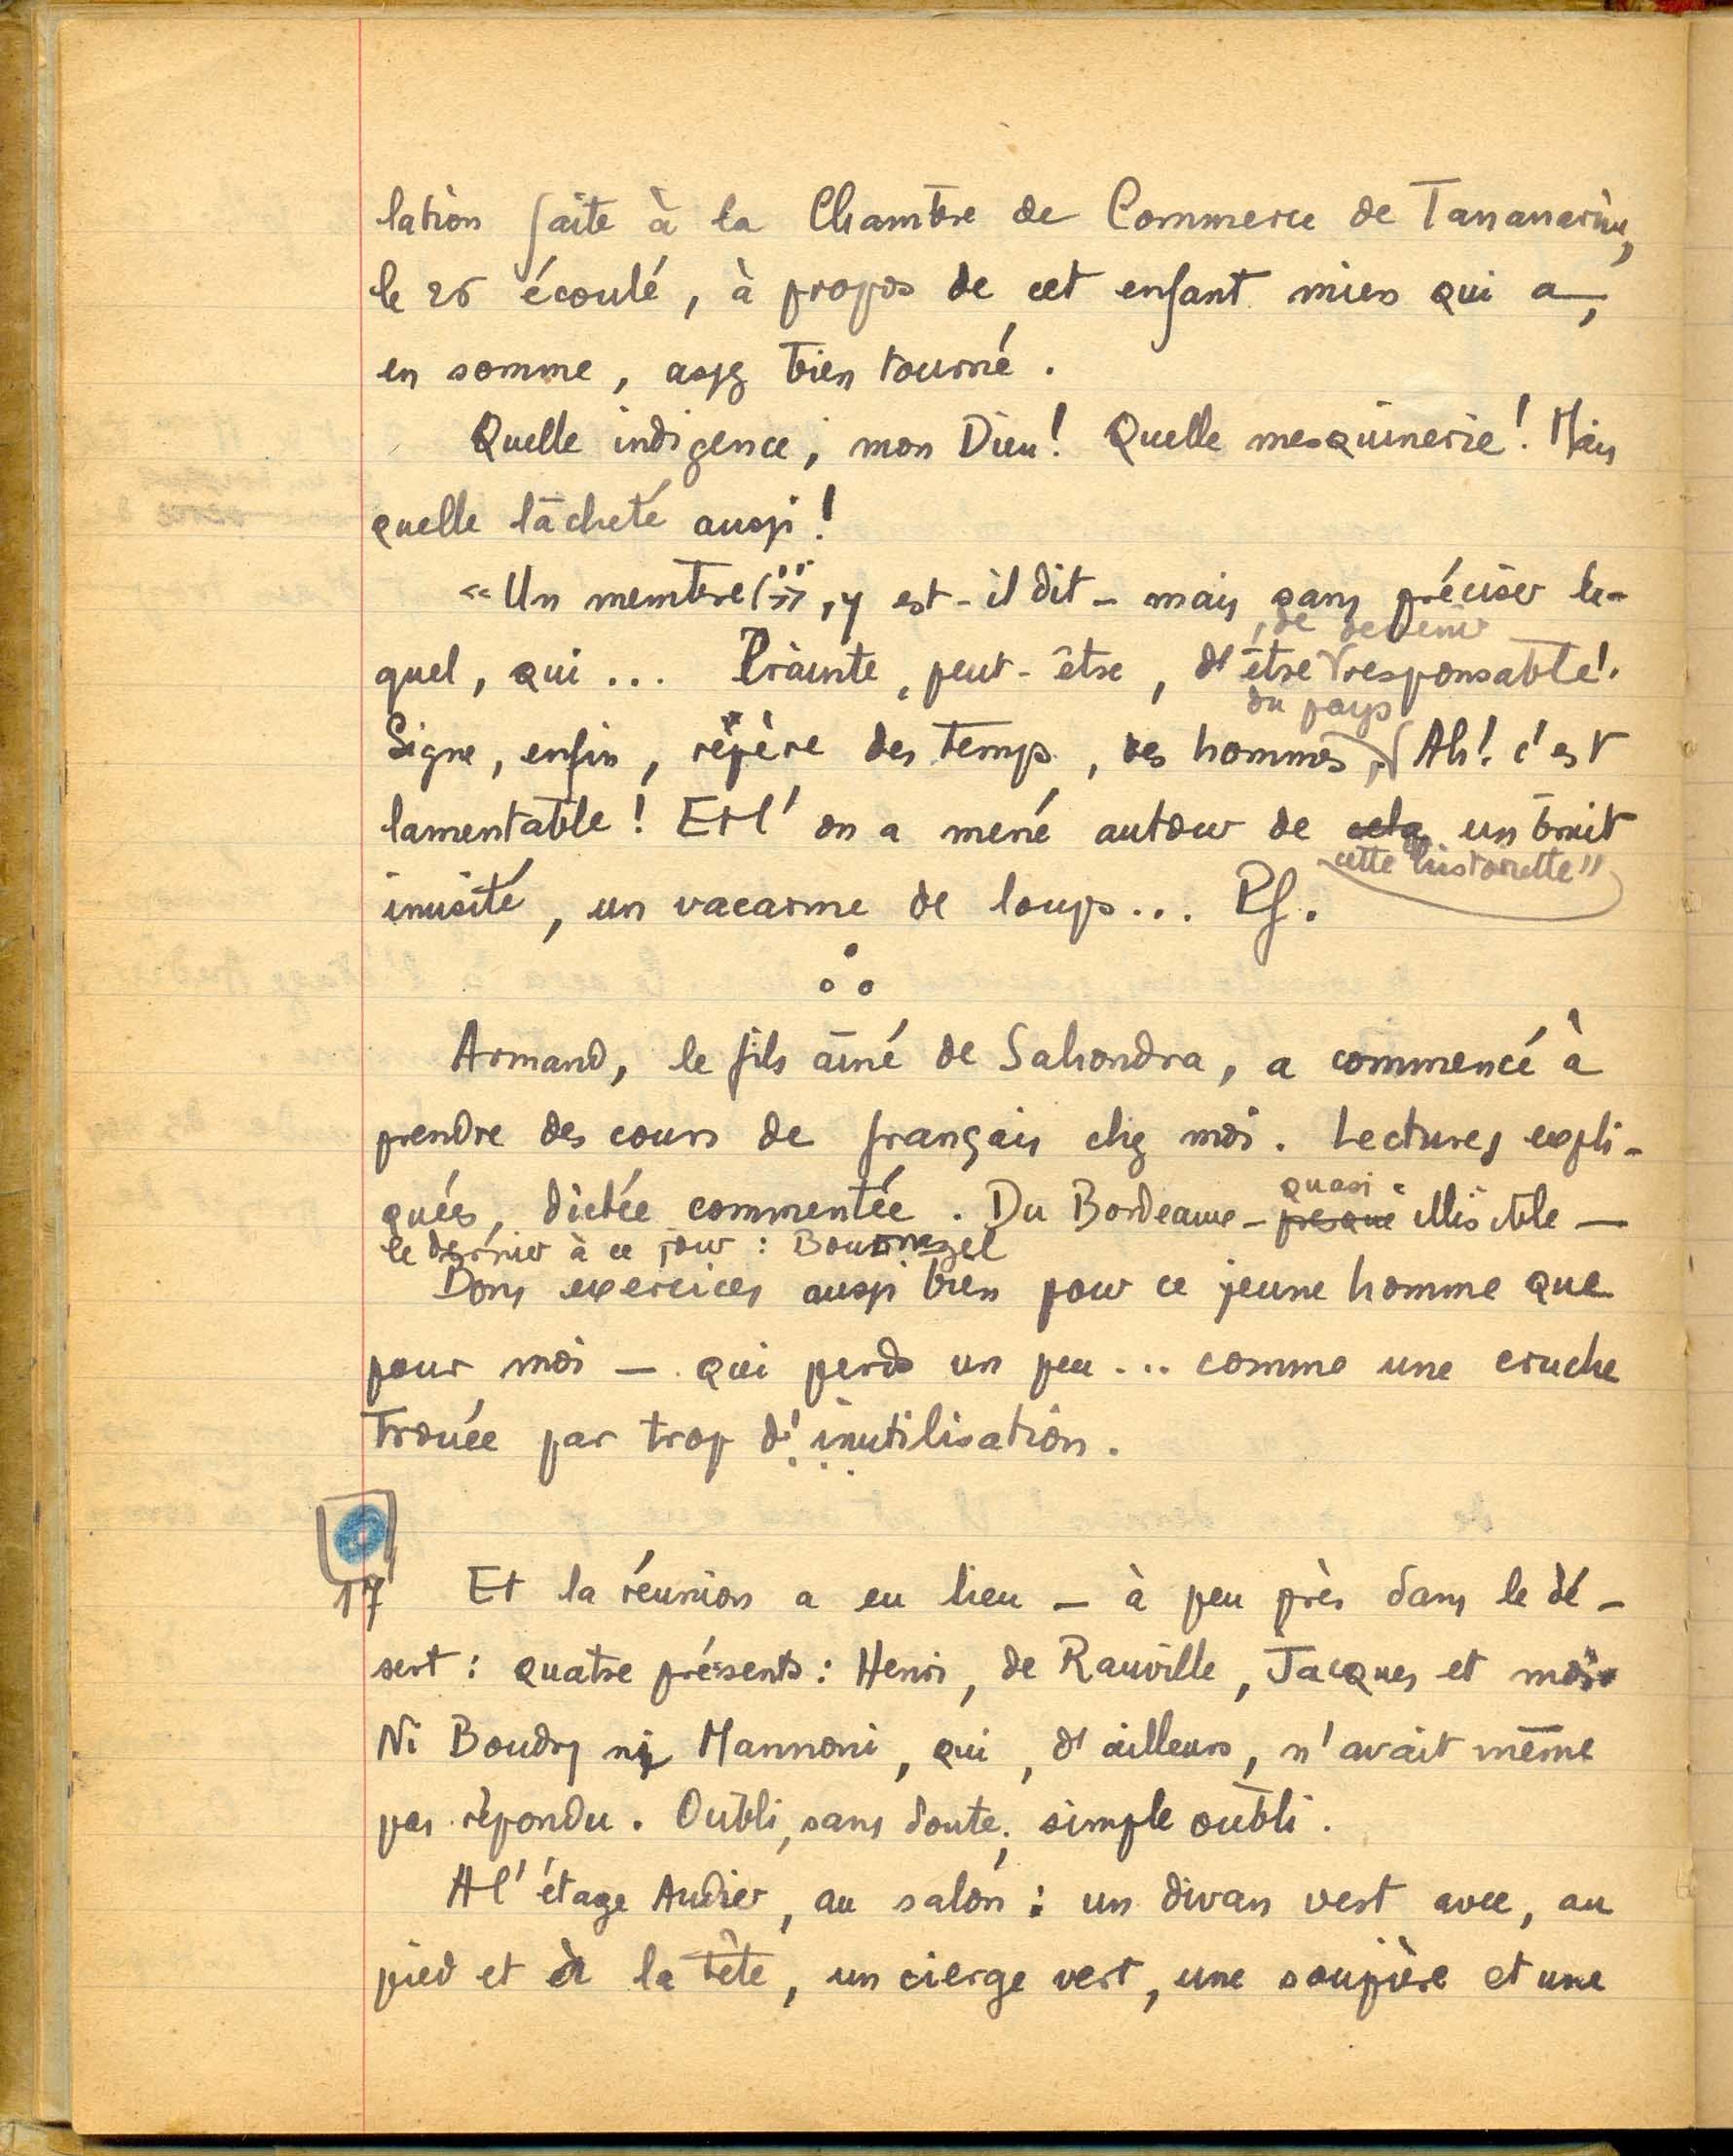 lation faite à la Chambre de Commerce de Tananarive,
le 26 écoulé, à propos de cet enfant mien qui a,
en somme, assez bien tourné.
Quelle indigence, mon Dieu! Quelle mesquinerie! Mais
quelle lâcheté aussi!
« Un membre (!!) », y est-il dit – mais sans préciser le-
, de devenir
quel, qui... Crainte, peut-être, d'être responsable!.
du pays
Signe, enfin, repère des temps, des hommes, Ah! c'est
lamentable! Et l'on a mené autour de cela un bruit
cette "historiette"
inusité, un vacarme de loups... Pf.
Armand, le fils aîné de Sahondra, a commencé à
prendre des cours de français chez moi. Lectures expli-
quasi-
quées, dictée commentée. Du Bordeaux – presque illisible –
le dernier à ce jour: Bournazel
Bons exercices aussi bien pour ce jeune homme que
pour moi – qui perds un peu... comme une cruche
trouée par trop d'inutilisation.
17 Et la réunion a eu lieu – à peu près dans le dé-
sert: quatre présents: Henri, de Rauville, Jacques et moi.
Ni Boudry ni Mannoni, qui, d'ailleurs, n'avait même
pas répondu. Oubli, sans doute; simple oubli.
A l'étage Audier, au salon: un divan vert avec, au
pied et à la tête, un cierge vert, une soupière et une